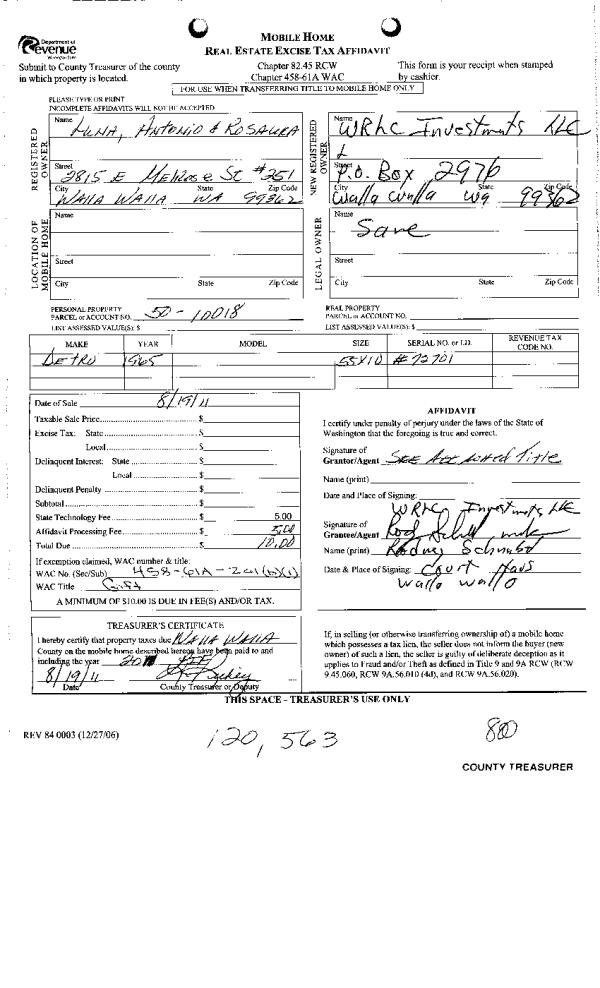 Department of
Revenue
Washington State
MOBILE HOME
REAL ESTATE EXCISE TAX AFFIDAVIT
Submit to County Treasurer of the county
in which property is located.
Chapter 82.45 RCW
Chapter 458-61A WAC
This form is your receipt when stamped
by cashier.
FOR USE WHEN TRANSFERRING TITLE TO MOBILE HOME ONLY
PLEASE TYPE OR PRINT
INCOMPLETE AFFIDAVITS WILL NOT BE ACCEPTED
REGISTERED OWNER
Name Antonio & Rosaura
Street 2815 E Melrose St #251
City State Zip Code
Walla Walla WA 99362
NEW REGISTERED OWNER
Name WRHC Investments LLC
Street P.O. Box 2976
City State Zip Code
Walla Walla Wa 99362
LOCATION OF MOBILE HOME
Name
Street
City State Zip Code
LEGAL OWNER
Name Same
Street
City State Zip Code
PERSONAL PROPERTY
PARCEL or ACCOUNT NO. 50-10018
LIST ASSESSED VALUE(S): $
REAL PROPERTY
PARCEL or ACCOUNT NO.
LIST ASSESSED VALUE(S): $
MAKE YEAR MODEL SIZE SERIAL NO. or I.D. REVENUE TAX CODE NO.
1965 55X10 #72701
Date of Sale 8/19/11
Taxable Sale Price $
Excise Tax: State $
Local $
Delinquent Interest: State $
Local $
Delinquent Penalty $
Subtotal $
State Technology Fee $ 5.00
Affidavit Processing Fee $ 5.00
Total Due $ 10.00
If exemption claimed, WAC number & title:
WAC No. (Sec/Sub) 458-61A-201(b)(1)
WAC Title Gift
A MINIMUM OF $10.00 IS DUE IN FEE(S) AND/OR TAX.
AFFIDAVIT
I certify under penalty of perjury under the laws of the State of
Washington that the foregoing is true and correct.
Signature of
Grantor/Agent See Attached Title
Name (print)
Date and Place of Signing:
WRHC Investments LLC
Signature of
Grantee/Agent
Name (print) Rodney
Date & Place of Signing: Court Haus
Walla Walla
TREASURER'S CERTIFICATE
I hereby certify that property taxes due Walla Walla
County on the mobile home described hereon have been paid to and
including the year
8/19/11
Date County Treasurer or Deputy
If, in selling (or otherwise transferring ownership of) a mobile home
which possesses a tax lien, the seller does not inform the buyer (new
owner) of such a lien, the seller is guilty of deliberate deception as it
applies to Fraud and/or Theft as defined in Title 9 and 9A RCW (RCW
9.45.060, RCW 9A.56.010 (4d), and RCW 9A.56.020).
THIS SPACE - TREASURER'S USE ONLY
REV 84 0003 (12/27/06)
120,563
COUNTY TREASURER